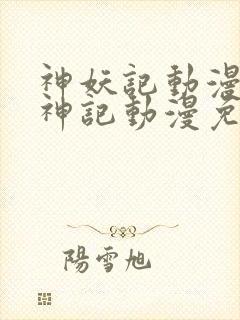 神妖記動漫
神記動漫免
陽雪旭